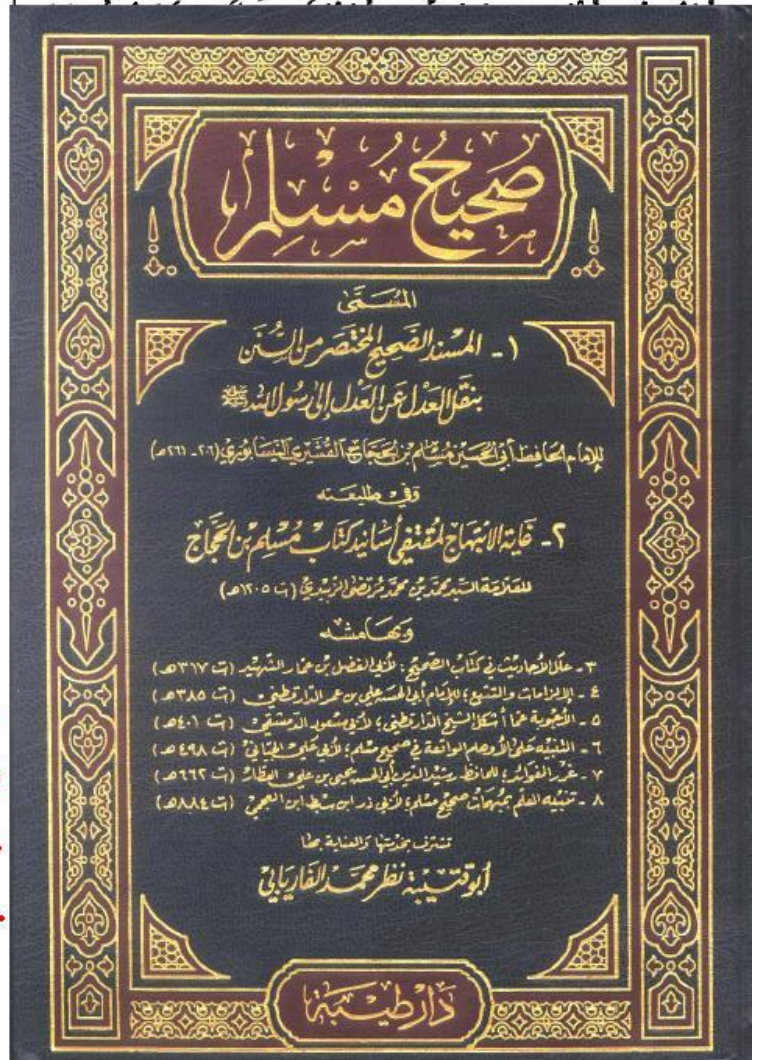 صَحِيحُ مُسْلِمٍ
المُسَمَّى
١ - المسْنَد الصَّحِيح المُختَصَر مِنَ السُّنَن
بنَقْل العَدْل عَن العَدْل إلى رسُول الله ﷺ
للإمام الحَافِظ أبي الحُسَين مُسْلِم بن الحَجَّاج القُشَيري النَّيسَابُوري (٢٠٦ - ٢٦١هـ)
وفي طليعته
٢ - غاية الابتهاج لمقتفي أسانيد كتاب مُسْلِم بن الحَجَّاج
للعَلّامَة السَيّد محمّد بن محمّد مُرتضى الزَّبيدي (ت ١٢٠٥هـ)
وبهامشه
٣ - علل الأحاديث في كتاب الصحيح؛ لأبي الفضل بن عمار الشهيد (ت ٣١٧هـ)
٤ - الإلزامات والتتبع؛ للإمام أبي الحسن علي بن عمر الدارقطني (ت ٣٨٥هـ)
٥ - الأجوبة عما أشكل الشيخ الدارقطني؛ لأبي مسعود الدمشقي (ت ٤٠١هـ)
٦ - التنبيه على الأوهام الواقعة في صحيح مسلم؛ لأبي علي الجياني (ت ٤٩٨هـ)
٧ - غرر الفوائد؛ للحافظ رشيد الدين أبي الحسن يحيى بن علي العطار (ت ٦٦٢هـ)
٨ - تنبيه المعلم بمبهمات صحيح مسلم؛ لأبي ذر ابن سبط ابن العجمي (ت ٨٨٤هـ)
تشرف بخدمتها والعناية بها
أبو قتيبة نظر محمد الفاريابي
دَار طَيْبَة